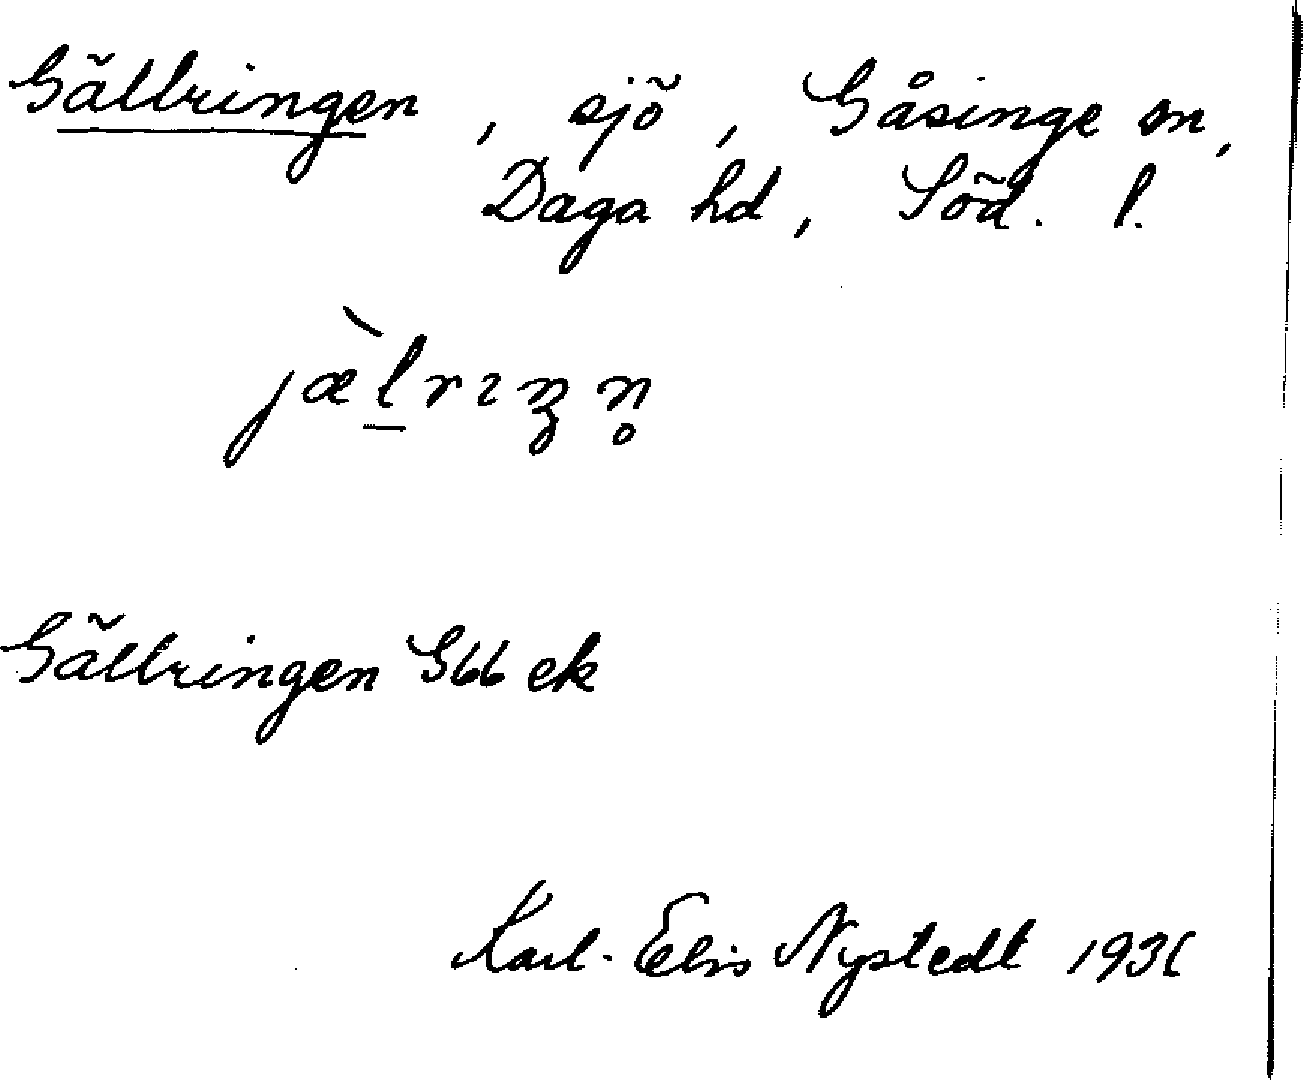 Gällringen, sjö, Gåsinge sn,
Daga hd, Söd. l.
jæ̀l̠rɪŋn̥
Gällringen G66 ek
Karl-Elis Nystedt 1931